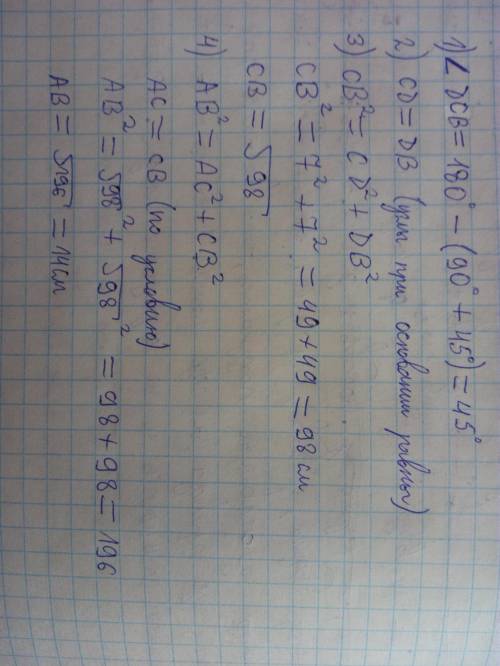 1) ∠ DCB = 180° − (90° + 45°) = 45°
2) CD = DB (углы при основании равны)
3) CB² = CD² + DB²
CB² = 7² + 7² = 49 + 49 = 98 см
CB = √98
4) AB² = AC² + CB²
AC = CB (по условию)
AB² = √98² + √98² = 98 + 98 = 196
AB = √196 = 14 см